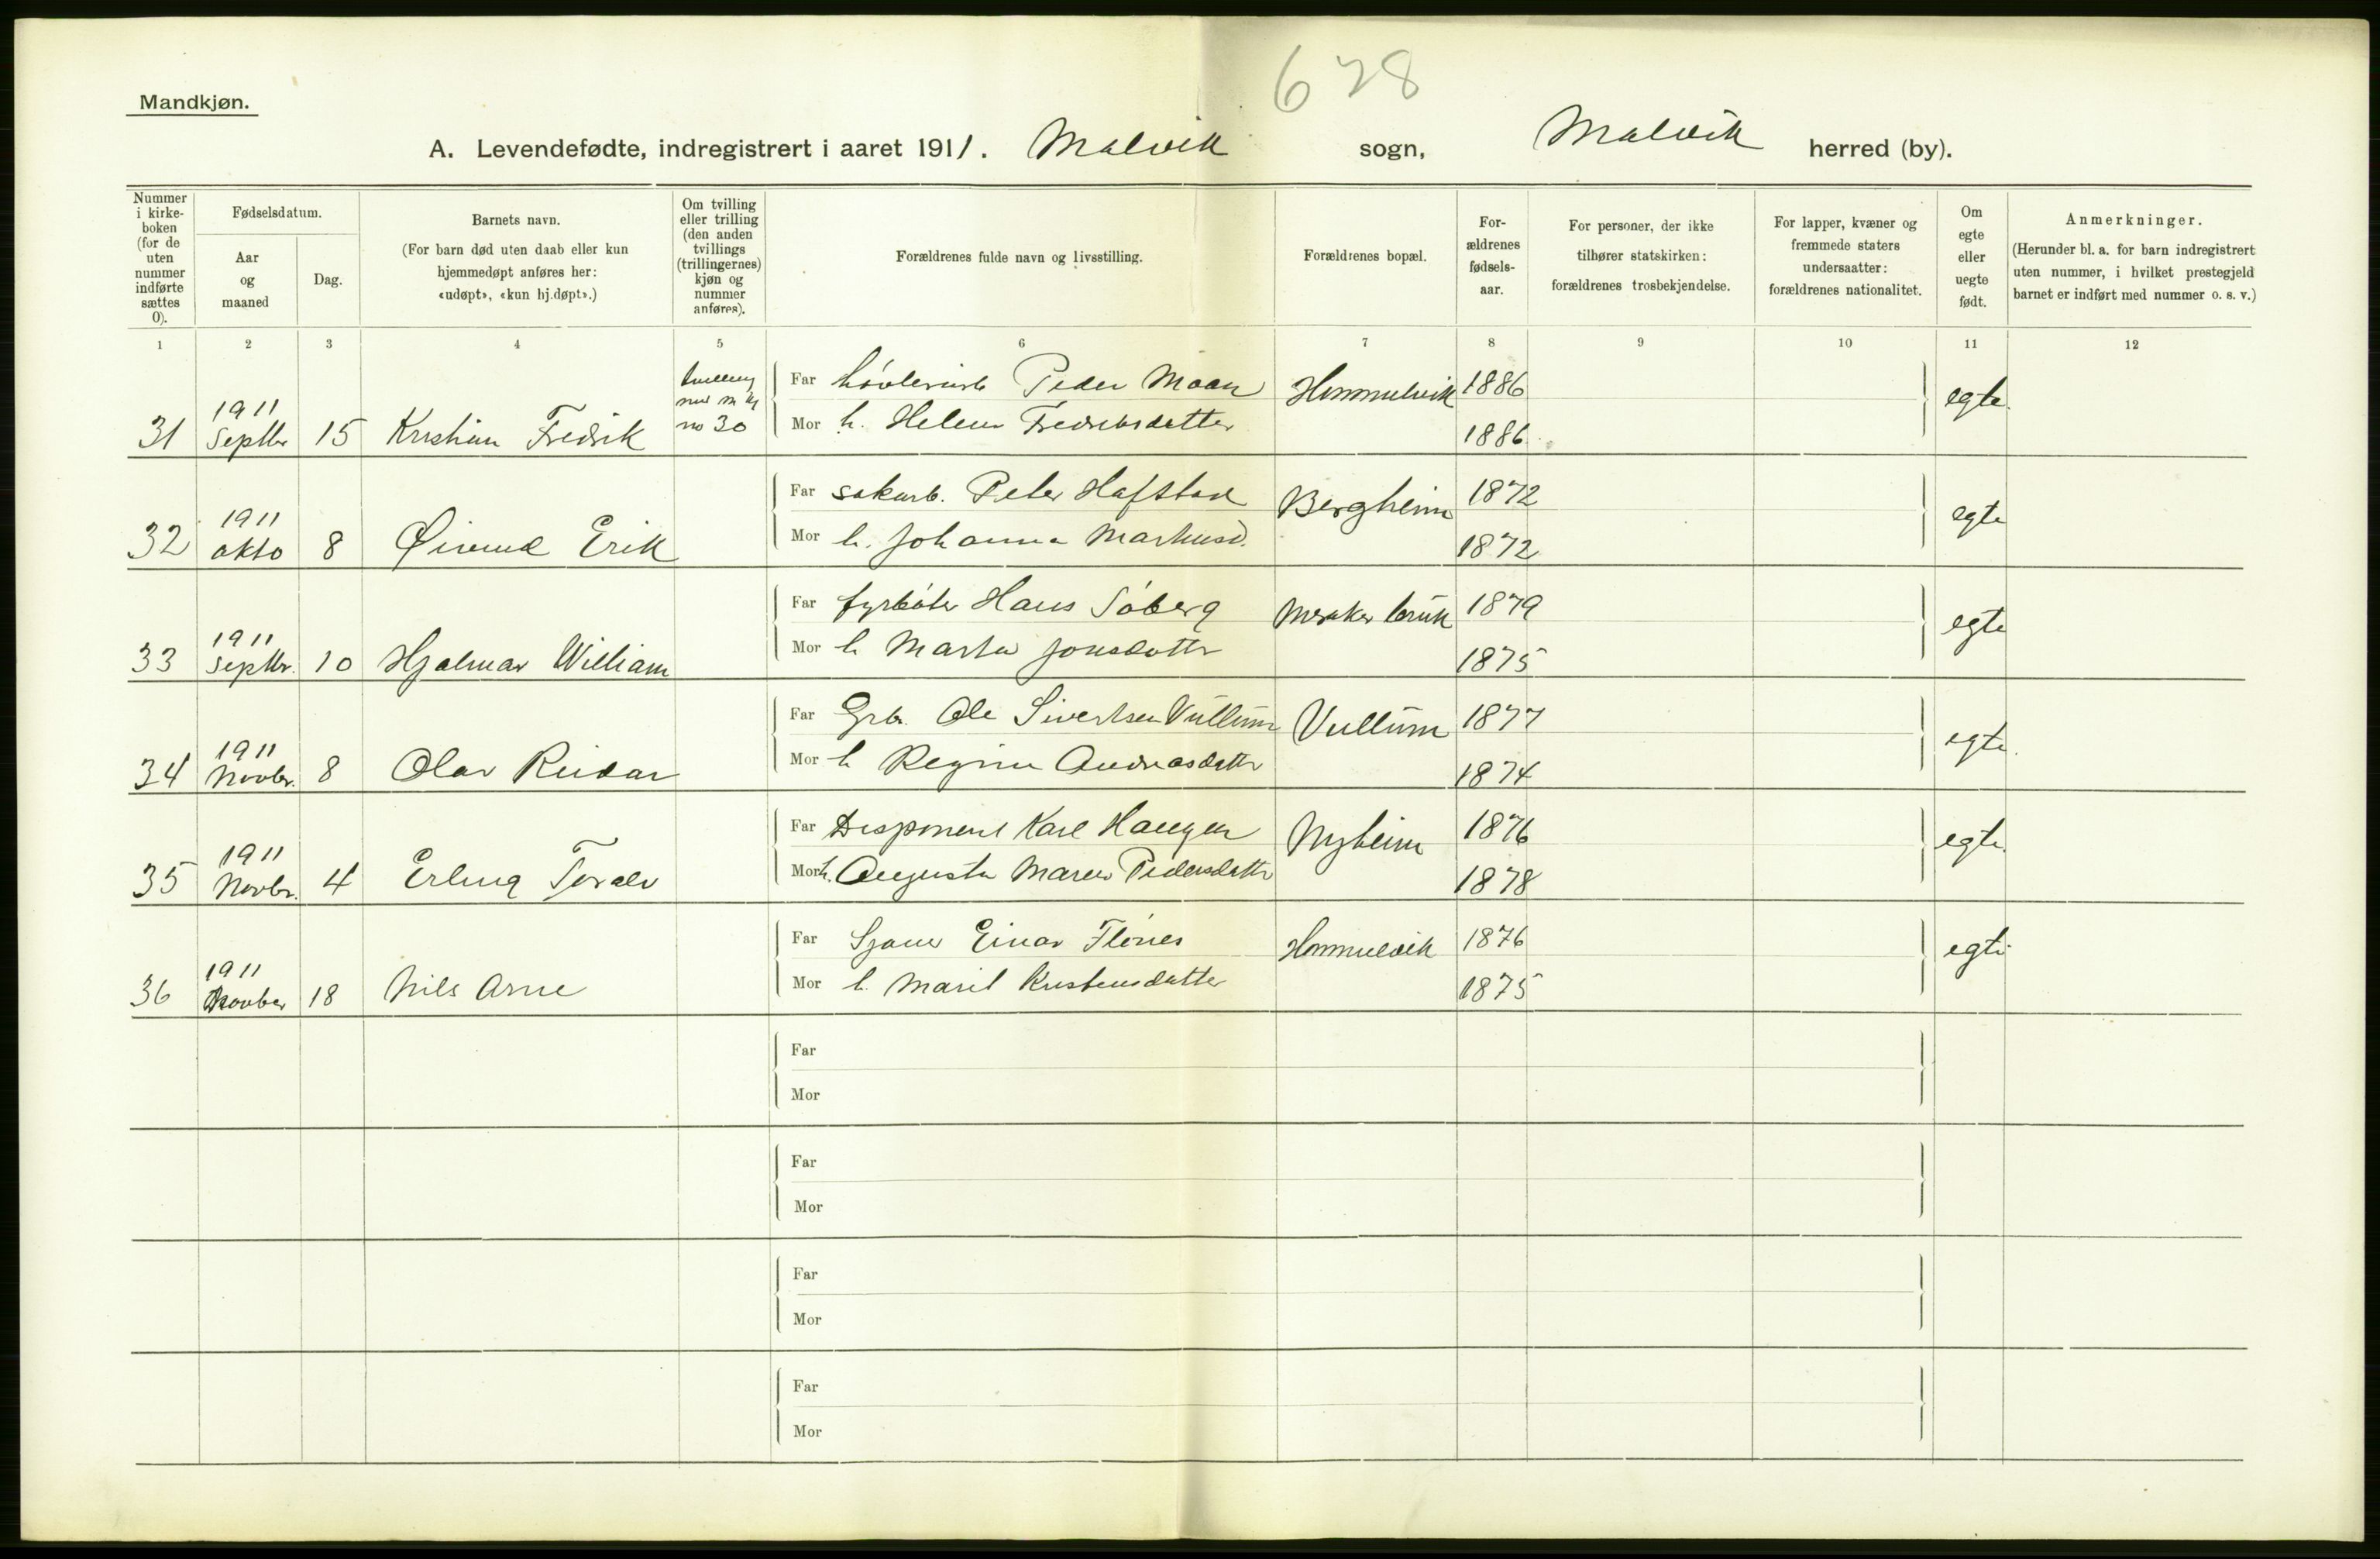 628
Mandkjøn.
A. Levendefødte, indregistrert i aaret 1911. Malvik sogn, Malvik herred (by).
Nummer i kirke- boken (for de uten nummer indførte sættes 0).
Fødselsdatum.
Aar og maaned
Dag.
Barnets navn.
(For barn død uten daab eller kun hjemmedøpt anføres her: «udøpt», «kun hj.døpt».)
Om tvilling eller trilling (den anden tvillings (trillingernes) kjøn og nummer anføres).
Forældrenes fulde navn og livsstilling.
Forældrenes bopæl.
For- ældrenes fødsels- aar.
For personer, der ikke tilhører statskirken: forældrenes trosbekjendelse.
For lapper, kvæner og fremmede staters undersaatter: forældrenes nationalitet.
Om egte eller uegte født.
Anmerkninger.
(Herunder bl. a. for barn indregistrert uten nummer, i hvilket prestegjeld barnet er indført med nummer o. s. v.)
1 2 3 4 5 6 7 8 9 10 11 12
31 1911 Septbr 15 Kristian Fredrik tvilling med m kj no 30
Far høvleriarb Peder Moan Hommelvik 1886 egte
Mor h. Helene Fredriksdatter 1886
32 1911 okto 8 Øivind Erik
Far sakarb. Peter Hafstad Bergheim 1872 egte
Mor h. Johanna Markusd. 1872
33 1911 Septbr. 10 Hjalmar William
Far fyrbøter Hans Søberg Meraker bruk 1879 egte
Mor h Marta Jonsdattr 1875
34 1911 Novbr. 8 Olav Reidar
Far Grb. Ole Sivertsen Vullum Vullum 1877 egte
Mor h Regine Andreasdattr 1874
35 1911 Novbr. 4 Erling Toralv
Far Disponent Karl Haugen Nyheim 1876 egte
Mor h. Augusta Maren Pedersdattr 1878
36 1911 Novber 18 Nils Arne
Far Einar Flønes Hommelvik 1876 egte
Mor h. Marit Kristensdatter 1875
Far
Mor
Far
Mor
Far
Mor
Far
Mor